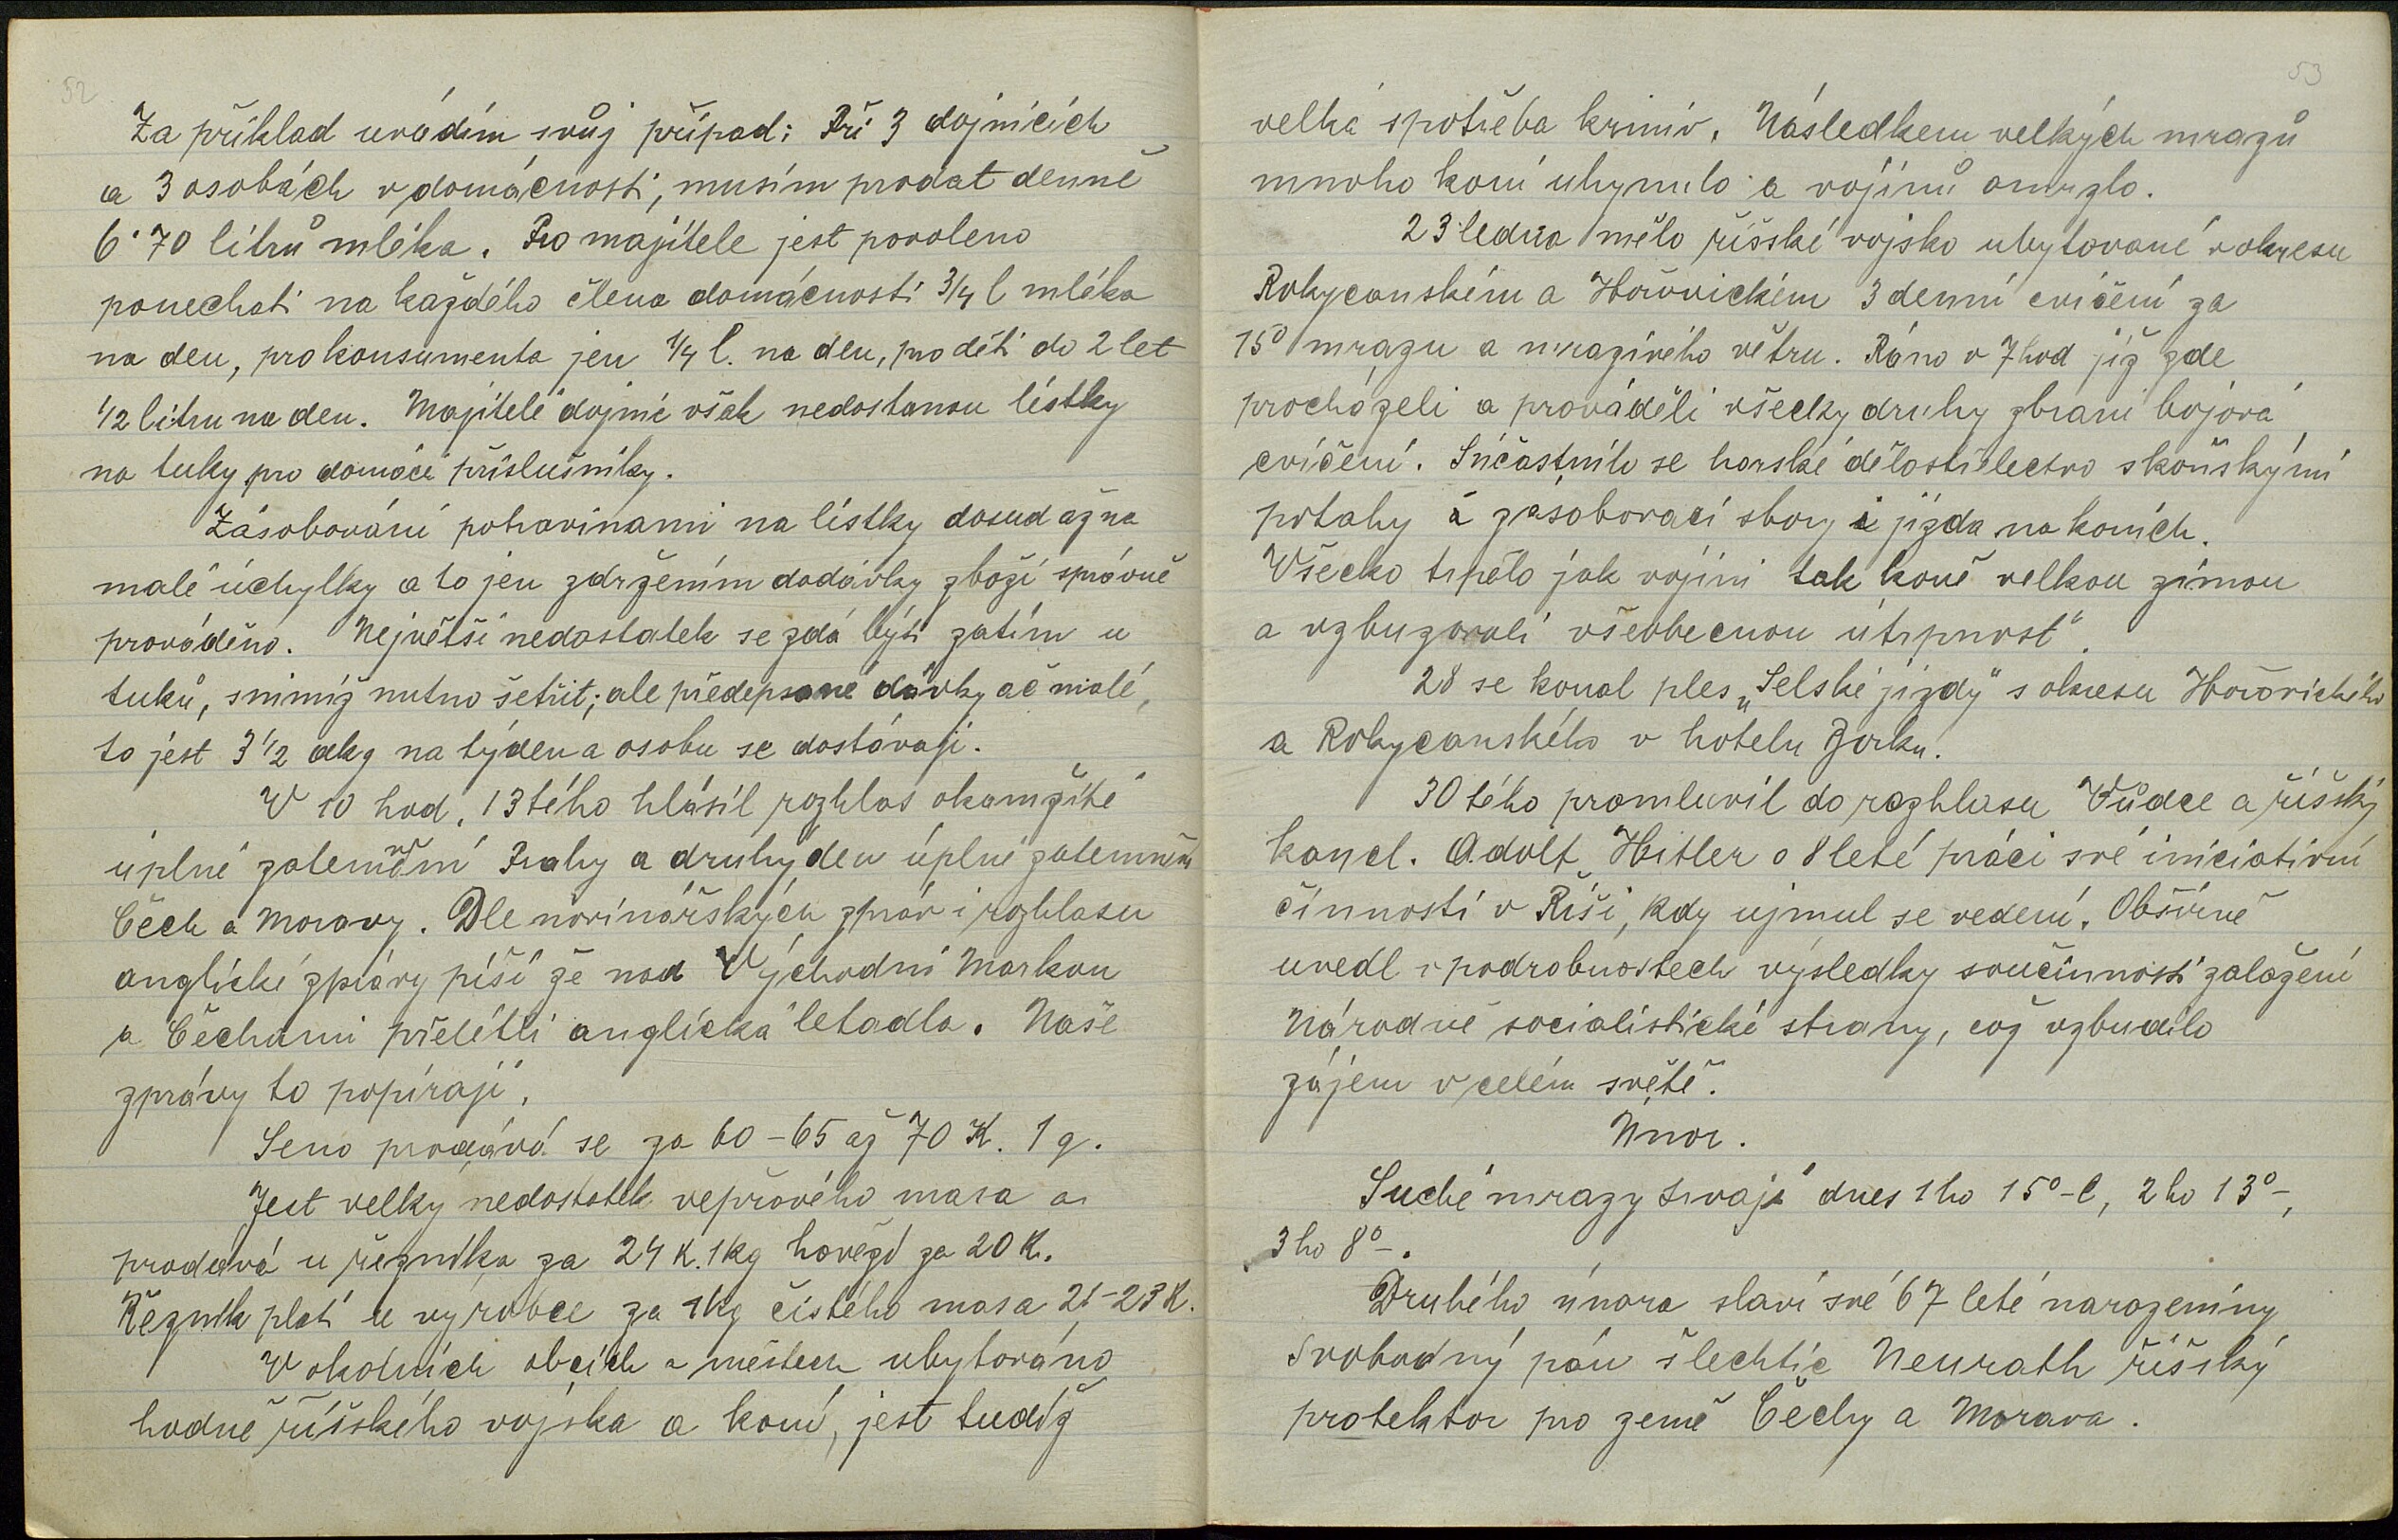 52
Za příklad uvádím svůj případ: Při 3 dojnicích
a 3 osobách v domácnosti, musím prodat denně
6·70 litrů mléka. Pro majitele jest povoleno
ponechati na každého člena domácnosti 3/4 l mléka
na den, pro konsumenta jen 1/4 l. na den, pro děti do 2 let
1/2 litru na den. Majitelé dojnic však nedostanou lístky
na tuky pro domácí příslušníky.
Zásobování potravinami na lístky dosud až na
malé úchylky a to jen zdržením dodávky zboží správně
prováděno. Největší nedostatek se zdá býti zatím u
tuků, snimiž nutno šetřit; ale předepsané dávky ač malé,
to jest 3 1/2 dkg na týden a osobu se dostávají.
V 10 hod. 13tého hlásil rozhlas okamžité
úplné zatemnění Prahy a druhý den úplné zatemnění
Čech a Moravy. Dle novinářských zpráv i rozhlasu
anglické zprávy píší že nad Východní Markou
a Čechami přelétli anglická letadla. Naše
zprávy to popírají.
Seno prodává se za 60-65 až 70 K. 1 q.
Jest velký nedostatek vepřového masa a
prodává u řezníka za 24 K. 1kg hovězí za 20 K.
Řezník platí u výrobce za 1kg čistého masa 21-23 K.
V okolních obcích a městech ubytováno
hodně říšského vojska a koní, jest tudíž
53
velká spotřeba krmiv. Následkem velkých mrazů
mnoho koní uhynulo a vojínů omrzlo.
23 ledna mělo říšské vojsko ubytované v okresu
Rokycanském a Hořovickém 3 denní cvičení za
15° mrazu a mrazivého větru. Ráno v 7 hod již zde
procházeli a prováděli všecky druhy zbraní bojová
cvičení. Súčastnilo se horské dělostřelectvo s koňskými
potahy a zásobovací sbory i jízda na koních.
Všecko trpělo jak vojíni tak koně velkou zimou
a vzbuzovali všeobecnou útrpnost.
28 se konal ples „Selské jízdy" s okresu Hořovického
a Rokycanského v hotelu Zorku.
30 tého promluvil do rozhlasu Vůdce a říšský
kancl. Adolf Hitler o 8 leté práci své iniciativní
činnosti v Říši, kdy ujmul se vedení. Obšírně
uvedl v podrobnostech výsledky součinnosti založení
Národně socialistické strany, což vzbudilo
zájem v celém světě.
Únor.
Suché mrazy trvají dnes 1 ho 15°-C, 2 ho 13°-,
3 ho 8°-.
Druhého února slaví své 67 leté narozeniny
Svobodný pán šlechtic Neurath říšský
protektor pro země Čechy a Morava.